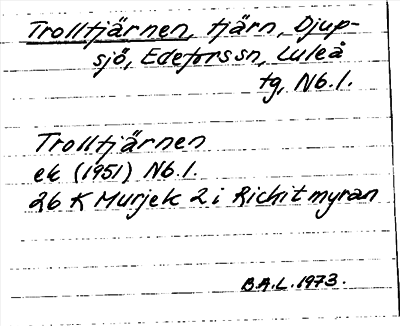 Trolltjärnen, tjärn, Djup-
sjö, Edefors sn, Luleå
tg, Nb.l.
Trolltjärnen
ek (1951) Nb.l.
26 K Murjek 2 i Richitmyran
B.A.L. 1973.